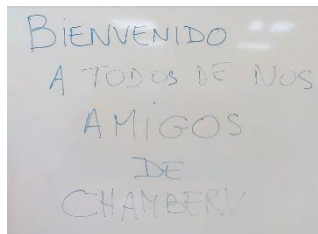 BIENVENIDO
A TODOS DE NOS
AMIGOS
DE
CHAMBERY